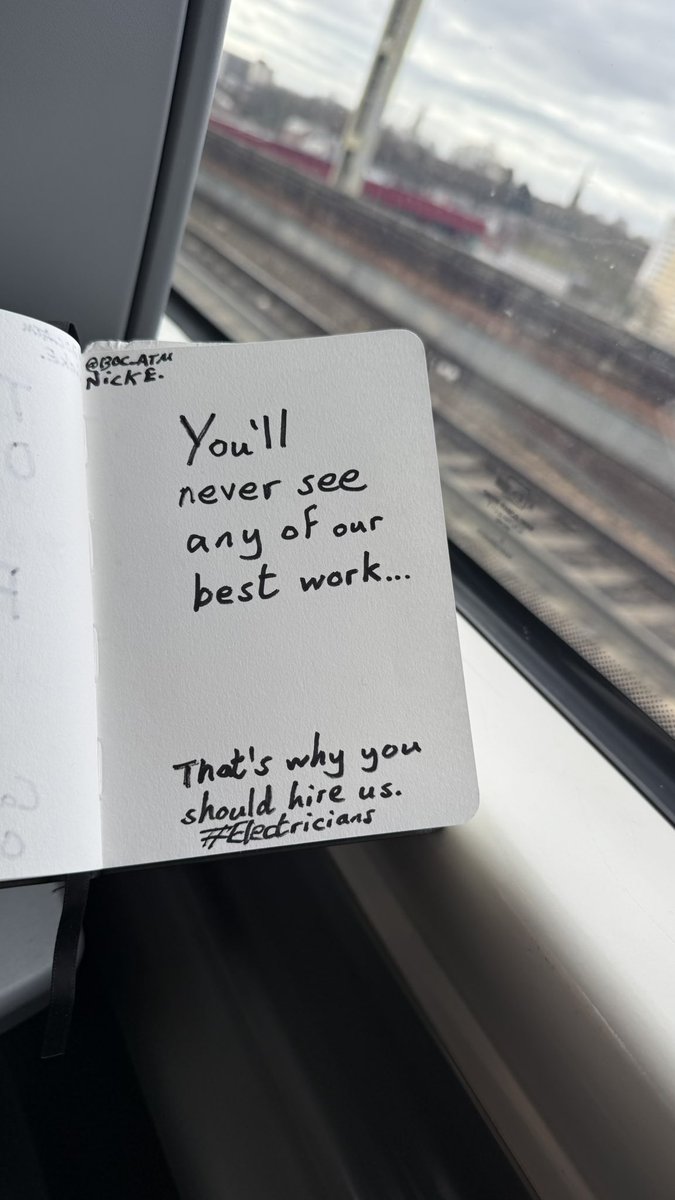 @BOC_ATM
Nick E.
You'll
never see
any of our
best work...
That's why you
should hire us.
#Electricians